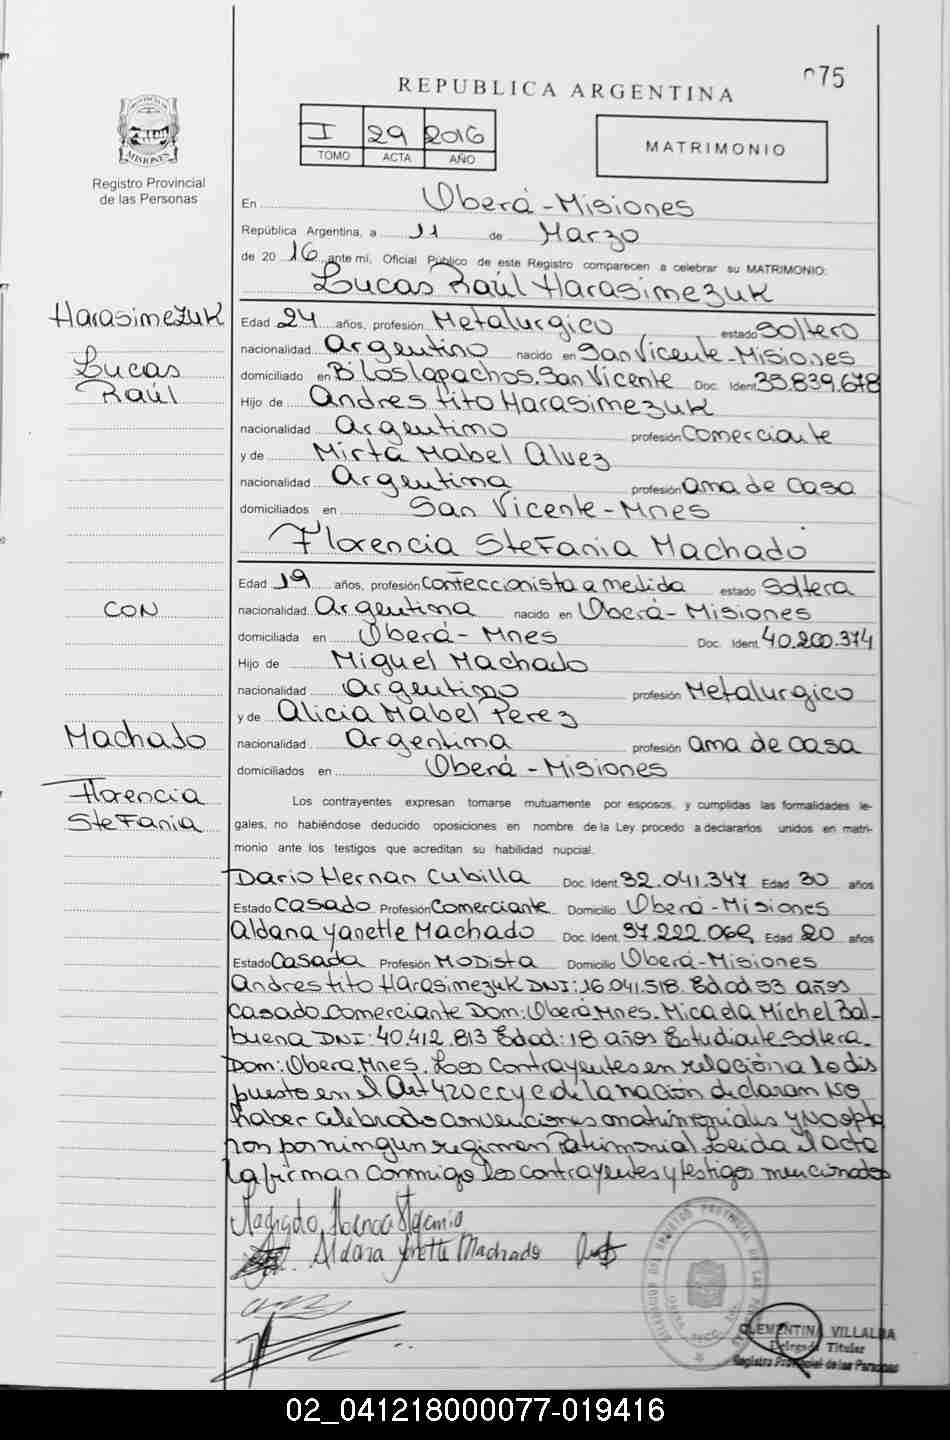 075
REPUBLICA ARGENTINA
I 29 2016
TOMO ACTA AÑO
MATRIMONIO
PROVINCIA DE
MISIONES
Registro Provincial
de las Personas
En Oberá - Misiones
República Argentina, a 11 de Marzo
de 20 16 ante mi, Oficial Público de este Registro comparecen a celebrar su MATRIMONIO:
Lucas Raúl Harasimezuk
Harasimezuk
Lucas
Raúl
Edad 24 años, profesión Metalurgico estado Soltero
nacionalidad Argentino nacido en San Vicente - Misiones
domiciliado en B Los Lapachos. San Vicente Doc. Ident 35.839.678
Hijo de Andres tito Harasimezuk
nacionalidad Argentino profesión Comerciante
y de Mirta Mabel Alvez
nacionalidad Argentina profesión ama de casa
domiciliados en San Vicente - Mnes
Florencia Stefania Machado
CON
Edad 19 años, profesión confeccionista a medida estado Soltera
nacionalidad Argentina nacido en Oberá - Misiones
domiciliada en Oberá - Mnes Doc. Ident 40.200.374
Hijo de Miguel Machado
nacionalidad Argentino profesión Metalurgico
y de Alicia Mabel Perez
Machado
Florencia
Stefania
nacionalidad Argentina profesión ama de casa
domiciliados en Oberá - Misiones
Los contrayentes expresan tomarse mutuamente por esposos, y cumplidas las formalidades le-
gales, no habiéndose deducido oposiciones en nombre de la Ley procedo a declararlos unidos en matri-
monio ante los testigos que acreditan su habilidad nupcial.
Dario Hernan Cubilla Doc. Ident 32.041.347 Edad 30 años
Estado Casado Profesión Comerciante Domicilio Oberá - Misiones
Aldana Yanette Machado Doc. Ident 37.222.062 Edad 20 años
Estado Casada Profesión Modista Domicilio Oberá - Misiones
Andres tito Harasimezuk DNI: 16.041.518. Edad 53 años
Casado Comerciante Dom: Oberá Mnes. Micaela Michel Bal-
buena DNI: 40.412.813 Edad: 18 años Estudiante soltera.
Dom: Oberá Mnes. Los contrayentes en relación a lo dis
puesto en el Art 420 CC y C de la nación declaran NO
haber celebrado convenciones matrimoniales y NO opta
ron por ningun regimen Patrimonial. Leida el acta
la firman conmigo los contrayentes y testigos mencionados
Machado Florencia Stefania
Aldana Yanette Machado
CLEMENTINA VILLALBA
Delegada Titular
Registro Provincial de las Personas
02_041218000077-019416